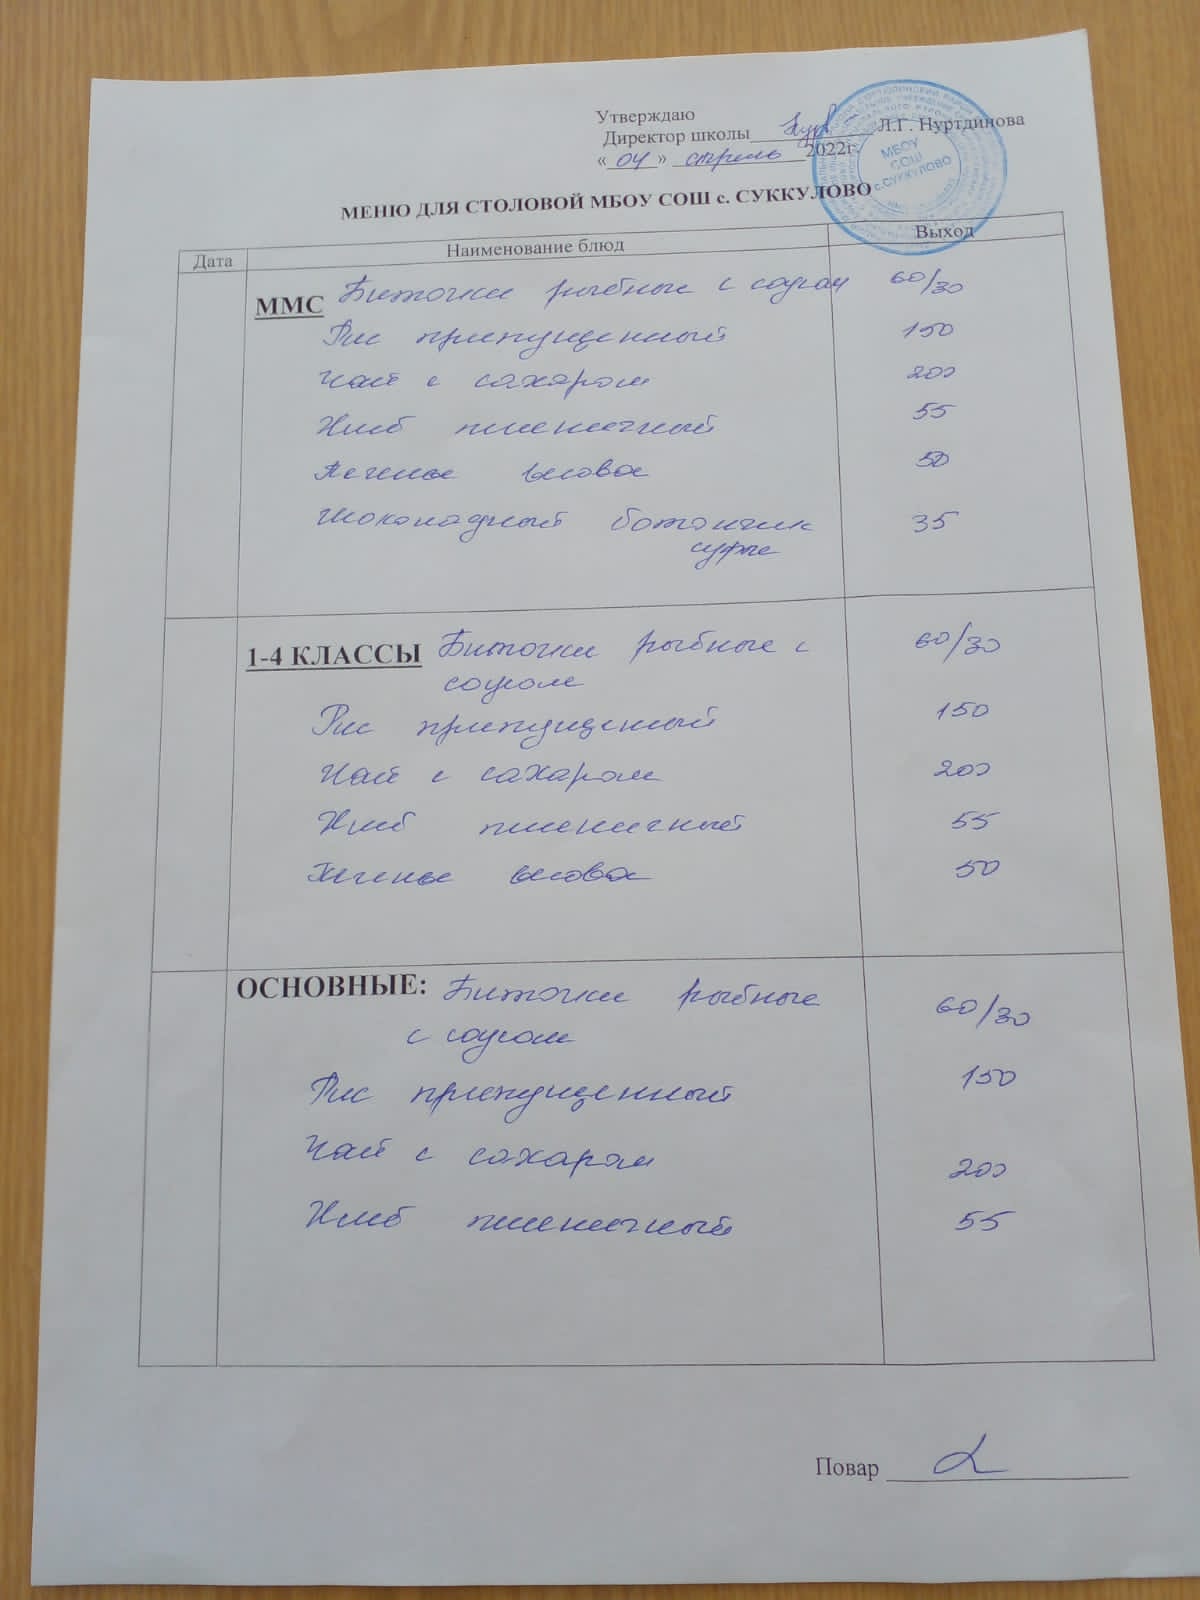 Утверждаю
Директор школы Л.Г. Нуртдинова
«04» апрель 2022г.
МБОУ
СОШ
с.СУККУЛОВО
МЕНЮ ДЛЯ СТОЛОВОЙ МБОУ СОШ с. СУККУЛОВО
Дата Наименование блюд Выход
ММС Биточки рыбные с соусом 60/30
Рис припущенный 150
Чай с сахаром 200
Хлеб пшеничный 55
Печенье весовое 50
Шоколадный батончик 35
суфле
1-4 КЛАССЫ Биточки рыбные с 60/30
соусом
Рис припущеный 150
Чай с сахаром 200
Хлеб пшеничный 55
Печенье весовое 50
ОСНОВНЫЕ: Биточки рыбные 60/30
с соусом
Рис припущенный 150
Чай с сахаром 200
Хлеб пшеничный 55
Повар